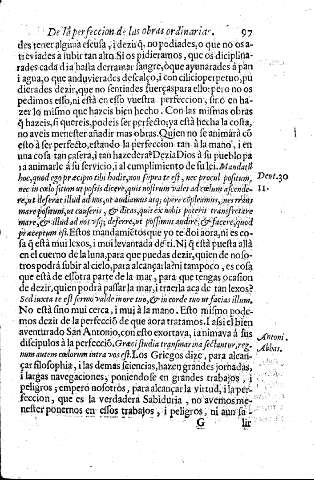 De la perfeccion de las obras ordinarias. 97
des tener alguna escusa, i dezir q̃ no podiades, o que no os a-
treviades a subir tan alto. Si os pidieramos, que os diciplina-
rades cada dia hasta derramar sangre, ò que ayunarades à pan
i agua, o que anduvierades descalço, i con cilicio perpetuo, pu
dierades dezir, que no sentiades fuerças para ello: pero no os
pedimos esso, ni està en esso vuestra perfeccion, sino en ha-
zer lo mismo que hazeis bien hecho. Con las mismas obras
q̃ hazeis, si quereis, podeis ser perfecto; ya està hecha la costa,
no aveis menester añadir mas obras. Quien no se animarà cõ
esto à ser perfecto, estando la perfeccion tan à la mano, i en
una cosa tan casera, i tan hazedera? Dezia Dios à su pueblo pa
ra animarle à su servicio, i al cumplimiento de su lei. Mandatũ
hoc, quod ego præcipio tibi hodie, non supra te est, nec procul positum,
nec in cœlo situm ut possis dicere, quis nostrum valet ad cœlum ascende-
re, ut deferat illud ad nos, ut audiamus atq; opere cõpleamus, nec trans
mare positum, ut causeris, & dicas, quis ex nobis poterit transfretare
mare, & illud ad nos usq; deferre, ut possimus audire, & facere, quod
præceptum est. Estos mandamiẽtos que yo te doi aora, ni es co-
sa q̃ està mui lexos, i mui levantada de tì. Ni q̃ està puesta allà
en el cuerno de la luna, para que puedas dezir, quien de noso-
tros podrà subir al cielo, para alcançarla? ni tampoco, es cosa
que està de essotra parte de la mar, para que tengas ocasion
de dezir, quien podrà passar la mar, i traerla acà de tan lexos?
Sed iuxta te est sermo valde in ore tuo, & in corde tuo ut facias illum.
No està sino mui cerca, i mui à la mano. Esto mismo pode-
mos dezir de la perfecciõ de que aora tratamos. I assi el bien
aventurado San Antonio, con esto exortava, i animava à sus
discipulos à la perfecciõ. Græci studia transmarina sectantur, reg-
num autem cœlorum intra vos est. Los Griegos dize, para alcan-
çar filosophia, i las demas sciencias, hazen grandes jornadas,
i largas navegaciones, poniendose en grandes trabajos, i
peligros; empero nosotros, para alcançar la virtud, i la per-
feccion, que es la verdadera Sabiduria, no avemos me-
nester ponernos en essos trabajos, i peligros, ni aun sa-
G lir
Deut. 30
11.
Antoni.
Abbas.